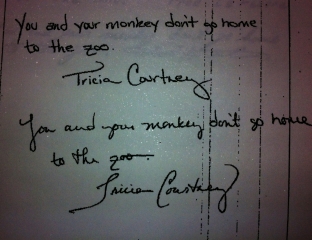 You and your monkey don't go home
to the zoo.
Tricia Cartney
You and your monkey don't go home
to the zoo.
Tricia Courtney